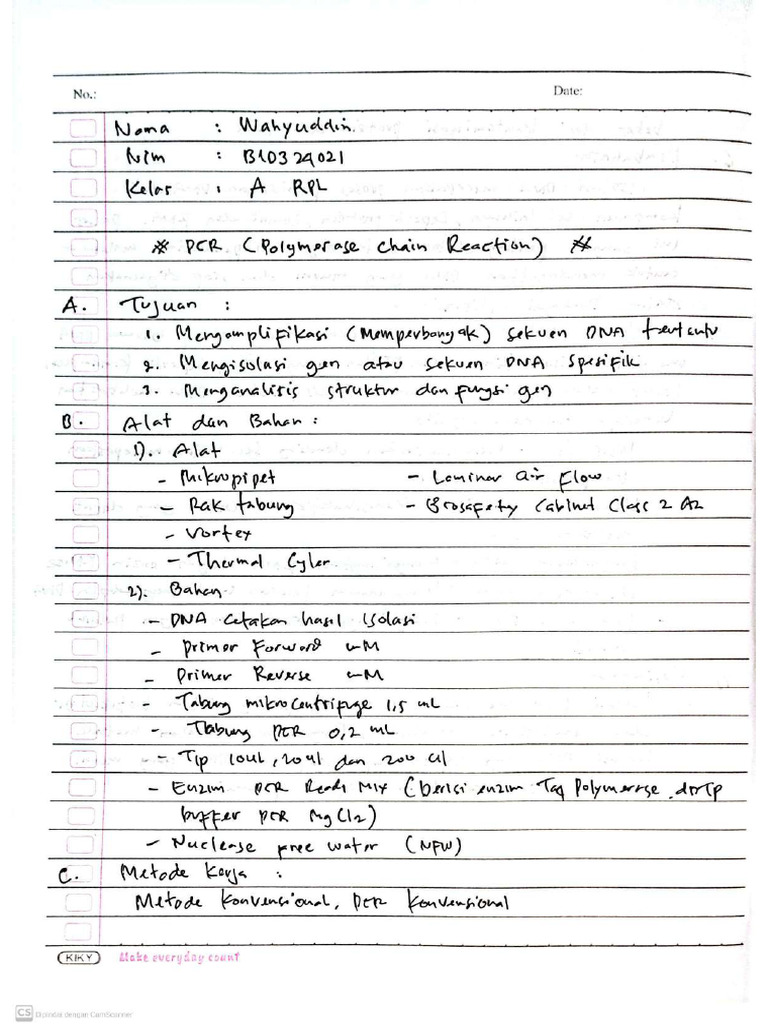 No.: Date:
Nama : Wahyuddin
Nim : B10324021
Kelas : A RPL
* PCR (Polymerase Chain Reaction) *
A. Tujuan :
1. Mengamplifikasi (Memperbanyak) sekuen DNA tertentu
2. Mengisolasi gen atau sekuen DNA spesifik
3. Menganalisis struktur dan fungsi gen
B. Alat dan Bahan :
1). Alat
- Mikropipet - Laminar air Flow
- Rak tabung - Biosafety Cabinet Class 2 A2
- Vortex
- Thermal Cyler
2). Bahan
- DNA cetakan hasil Isolasi
- Primer Forward uM
- Primer Reverse uM
- Tabung mikrocentrifuge 1,5 mL
- Tabung PCR 0,2 mL
- Tip 10ul, 20ul dan 200 ul
- Enzim PCR Readi Mix (berisi enzim Taq Polymerase, dNTP
buffer PCR MgCl2)
- Nuclease free water (NFW)
C. Metode Kerja :
Metode Konvensional, PCR Konvensional
KIKY Make everyday count
CS Dipindai dengan CamScanner